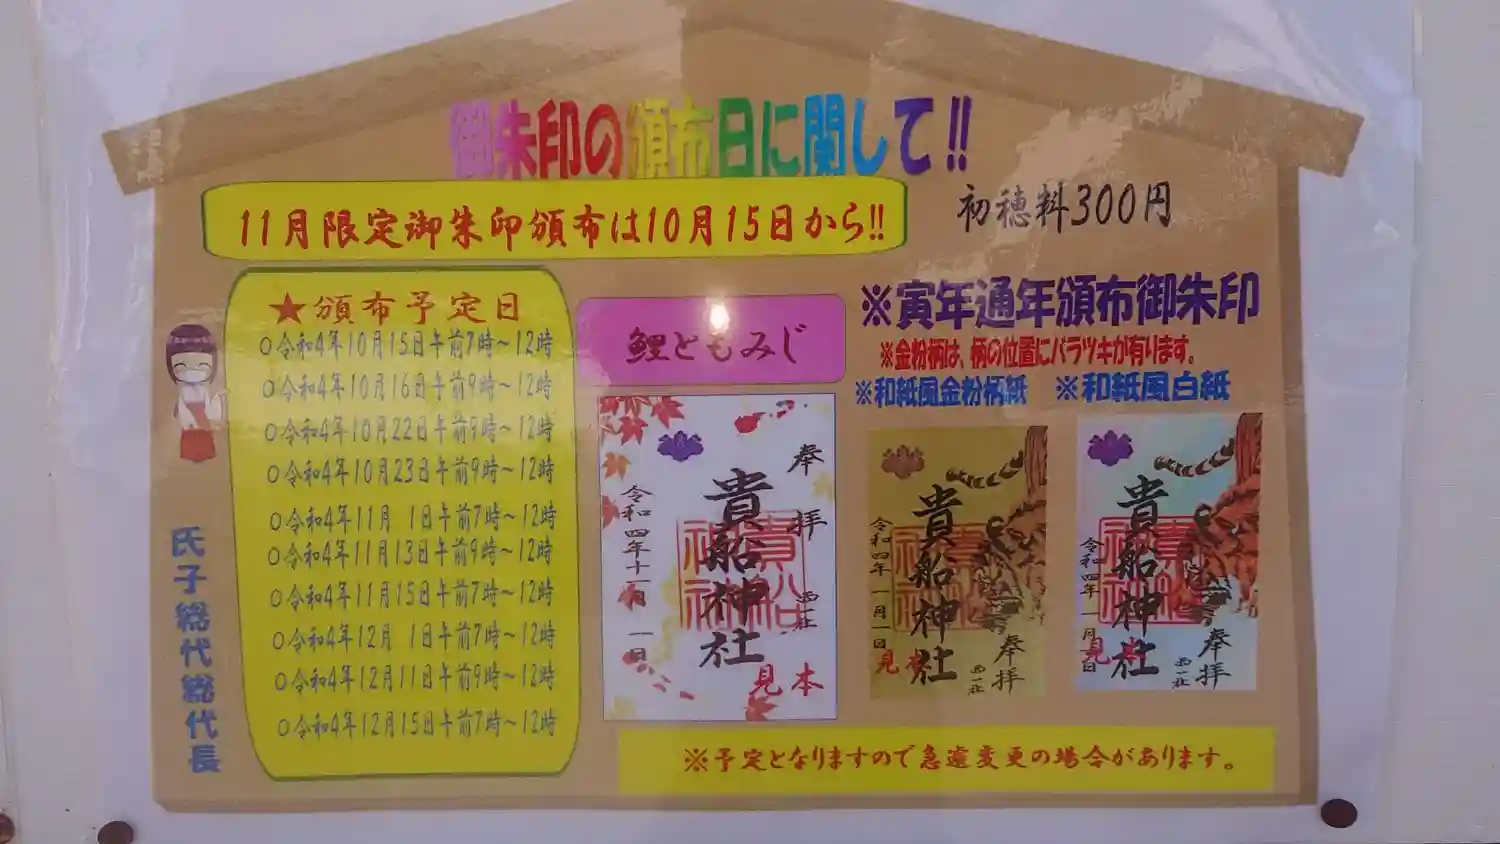 御朱印の頒布日に関して!!
11月限定御朱印頒布は10月15日から!!
初穂料300円
★頒布予定日
○令和4年10月15日午前7時～12時
○令和4年10月16日午前9時～12時
○令和4年10月22日午前9時～12時
○令和4年10月23日午前9時～12時
○令和4年11月 1日午前7時～12時
○令和4年11月13日午前9時～12時
○令和4年11月15日午前7時～12時
○令和4年12月 1日午前7時～12時
○令和4年12月11日午前9時～12時
○令和4年12月15日午前7時～12時
氏子総代総代長
鯉ともみじ
奉拝
西一社
貴船神社
貴船神社
令和四年十一月 一日
見本
※寅年通年頒布御朱印
※金粉柄は、柄の位置にバラツキが有ります。
※和紙風金粉柄紙
※和紙風白紙
貴船神社
令和四年 一月一日
奉拝
西一社
見本
貴船神社
令和四年 一月一日
奉拝
西一社
見本
※予定となりますので急遽変更の場合があります。